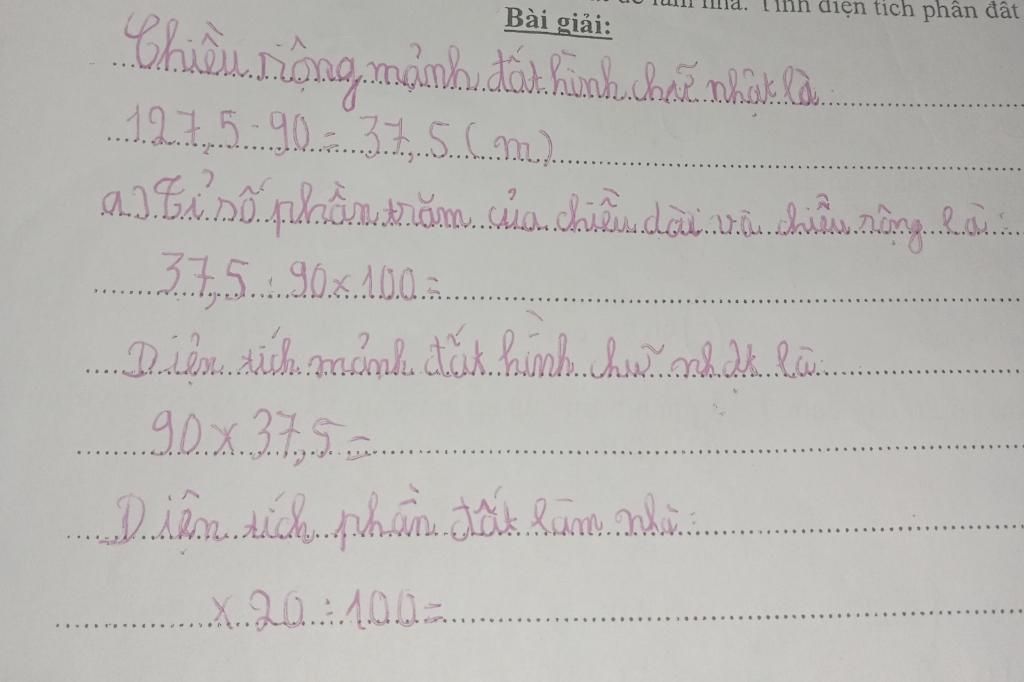 làm nhà. Tính diện tích phần đất
Bài giải:
Chiều rộng mảnh đất hình chữ nhật là
127,5 - 90 = 37,5 (m)
a) Tỉ số phần trăm của chiều dài và chiều rộng là:
37,5 : 90 x 100 =
Diện tích mảnh đất hình chữ nhật là:
90 x 37,5 =
Diện tích phần đất làm nhà:
x 20 : 100 =